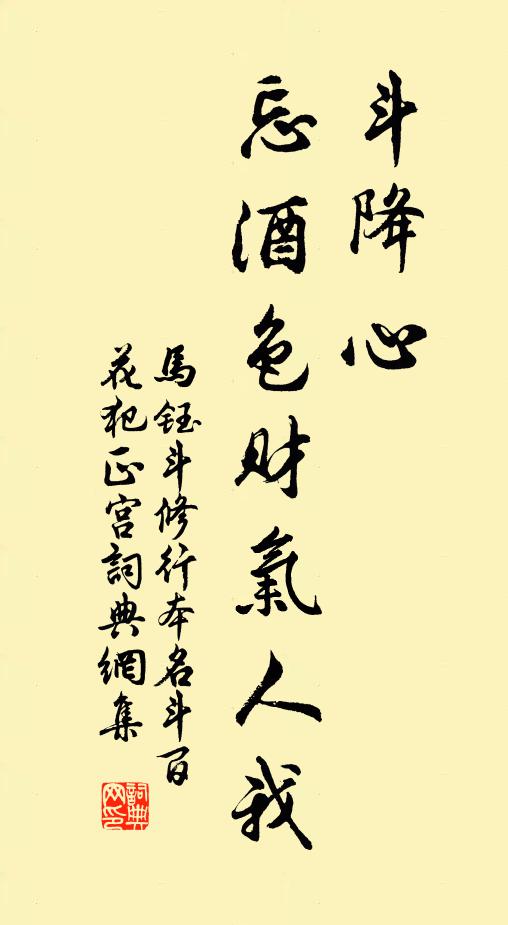 斗降心
忘酒色財氣人我
馬鈺斗修行本名斗百
花犯正宮詞典網集
詞典
网印